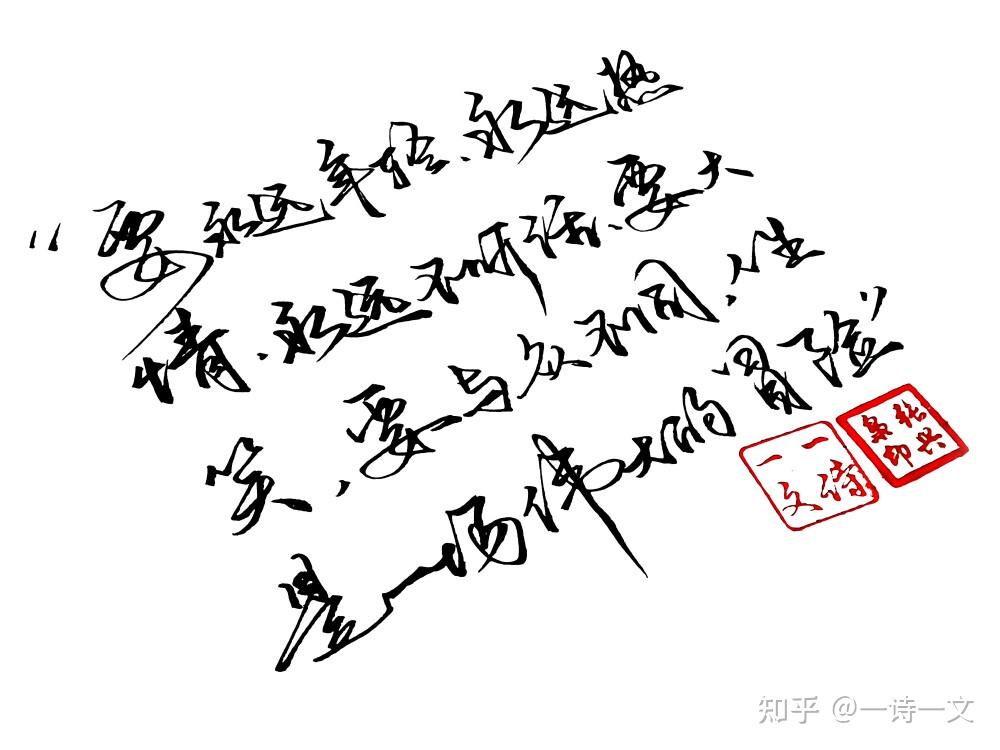 “要永远年轻，永远热
情，永远不听话，要大
笑，要与众不同，人生
是一场伟大的冒险”
一诗
一文
张兴
印
知乎 @一诗一文